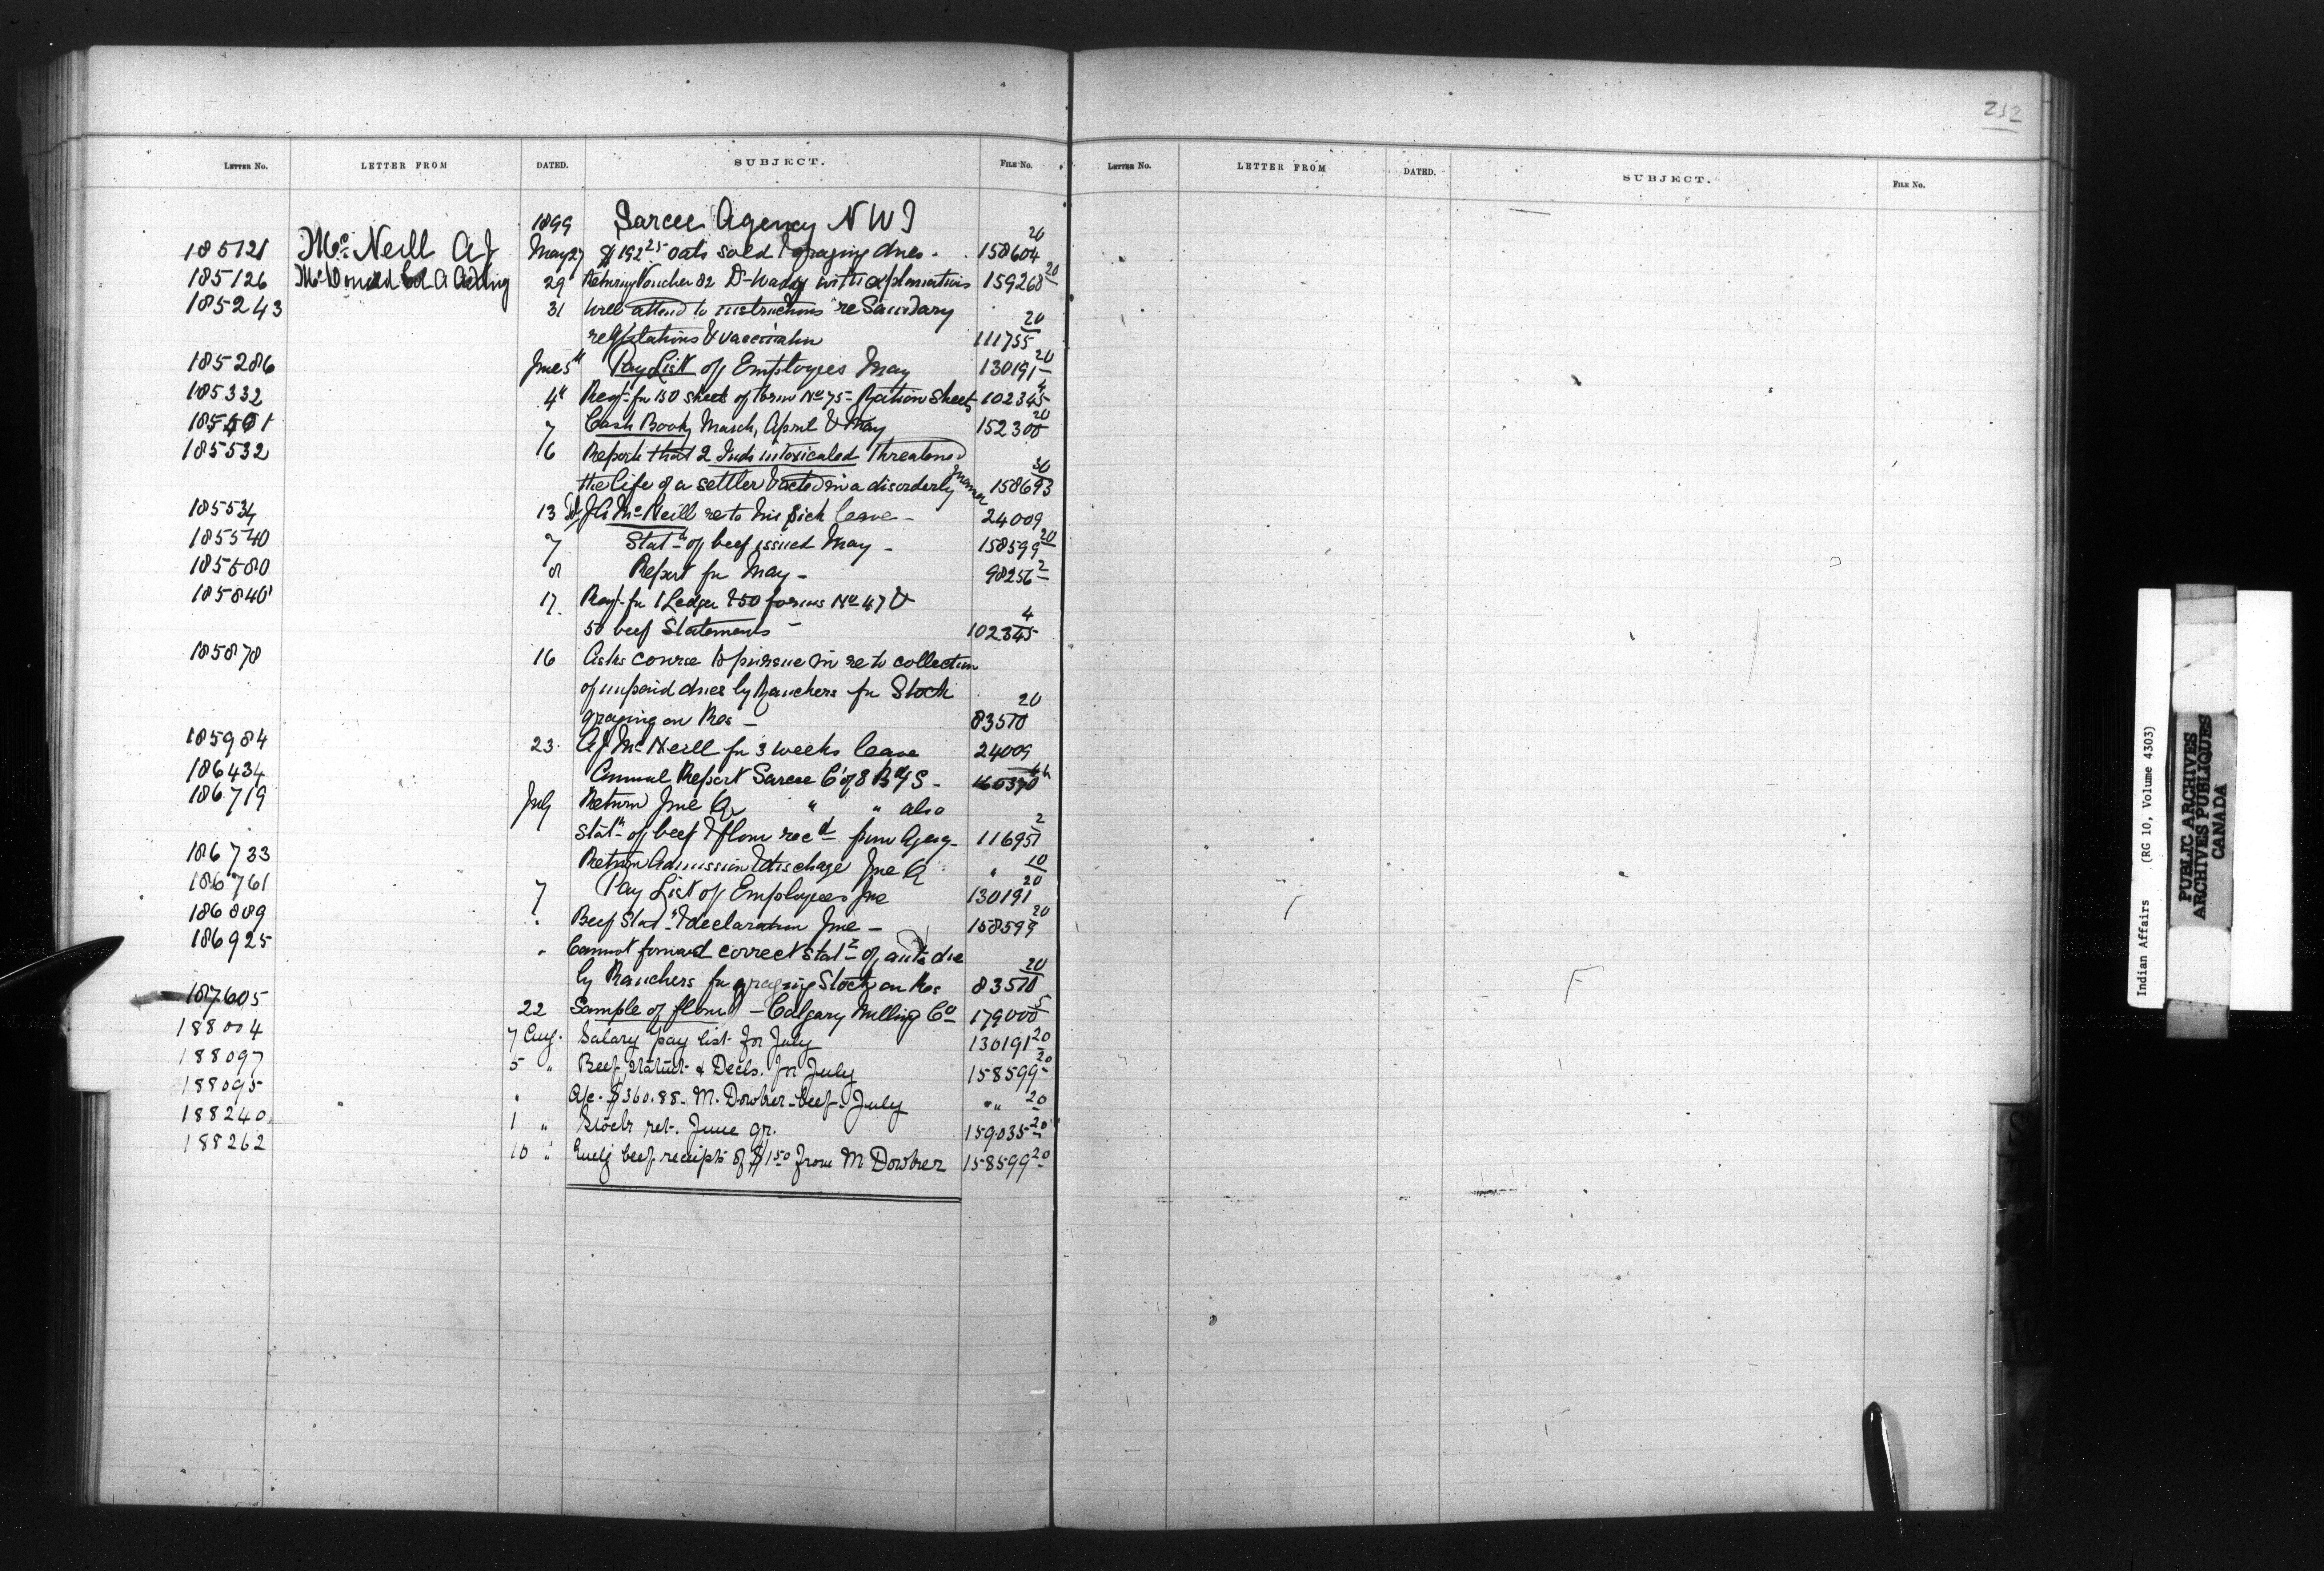 252
LETTER NO. LETTER FROM DATED. SUBJECT. FILE No.
LETTER NO. LETTER FROM DATED. SUBJECT. FILE No.
1899 Sarcee Agency N W T
185121 McNeill AJ May 27 $192 25 oats sold & grazing dues. 158604 20
185126 McDonald A Acting 29 Returning Voucher 82 with explanations 159268 20
185243 31 Will attend to instructions re Sanitary
regulations & vaccination 111755 20
185286 June 5th Pay List of Employees May 130191 20
185332 4th Reqn for 150 sheets of form No 75 - Ration Sheets 102345 4
7 Cash Book, March, April & May 152300 20
185532 16 Reports that 2 Inds intoxicated threatened
the life of a settler & acted in a disorderly manner 158693 30
185534 13 McNeill re to his sick leave - 24009
185540 7 Statt of beef issued May - 158599 20
185580 8 Report for May - 98256 2
185840 17. Reqn for 1 Ledger & 50 forms No 47 &
50 beef Statements - 102345 4
185878 16 Asks course to pursue in re to collection
of unpaid dues by Ranchers for Stock
grazing on Res - 83570 20
185984 23. AJ McNeill for 3 weeks leave 24009
186434 Annual Report Sarcee C of E Bdg S - 160390
186719 July Return June Qr " " also
Statt of beef & flour recd from Agency 116951 2
186733 Return Admission & discharge June Q " 10
186761 7 Pay List of Employees June 130191 20
186809 " Beef Statt & declaration June - 158599 20
186925 " Cannot forward correct statt of amts due
by Ranchers for grazing Stock on Res 83570 20
187605 22 Sample of flour - Calgary Milling Co 179000 5
188004 7 Aug. Salary pay list for July 130191 20
188097 5 " Beef statmt & Decls. for July 158599 20
188095 " A/c. $360.88. M. Dowker - beef - July " " 20
188240 1 " Stock ret. June qr. 159035 20
188262 10 " beef receipts of $1.50 from M Dowker 158599 20
Indian Affairs (RG 10, Volume 4303)
PUBLIC ARCHIVES
ARCHIVES PUBLIQUES
CANADA